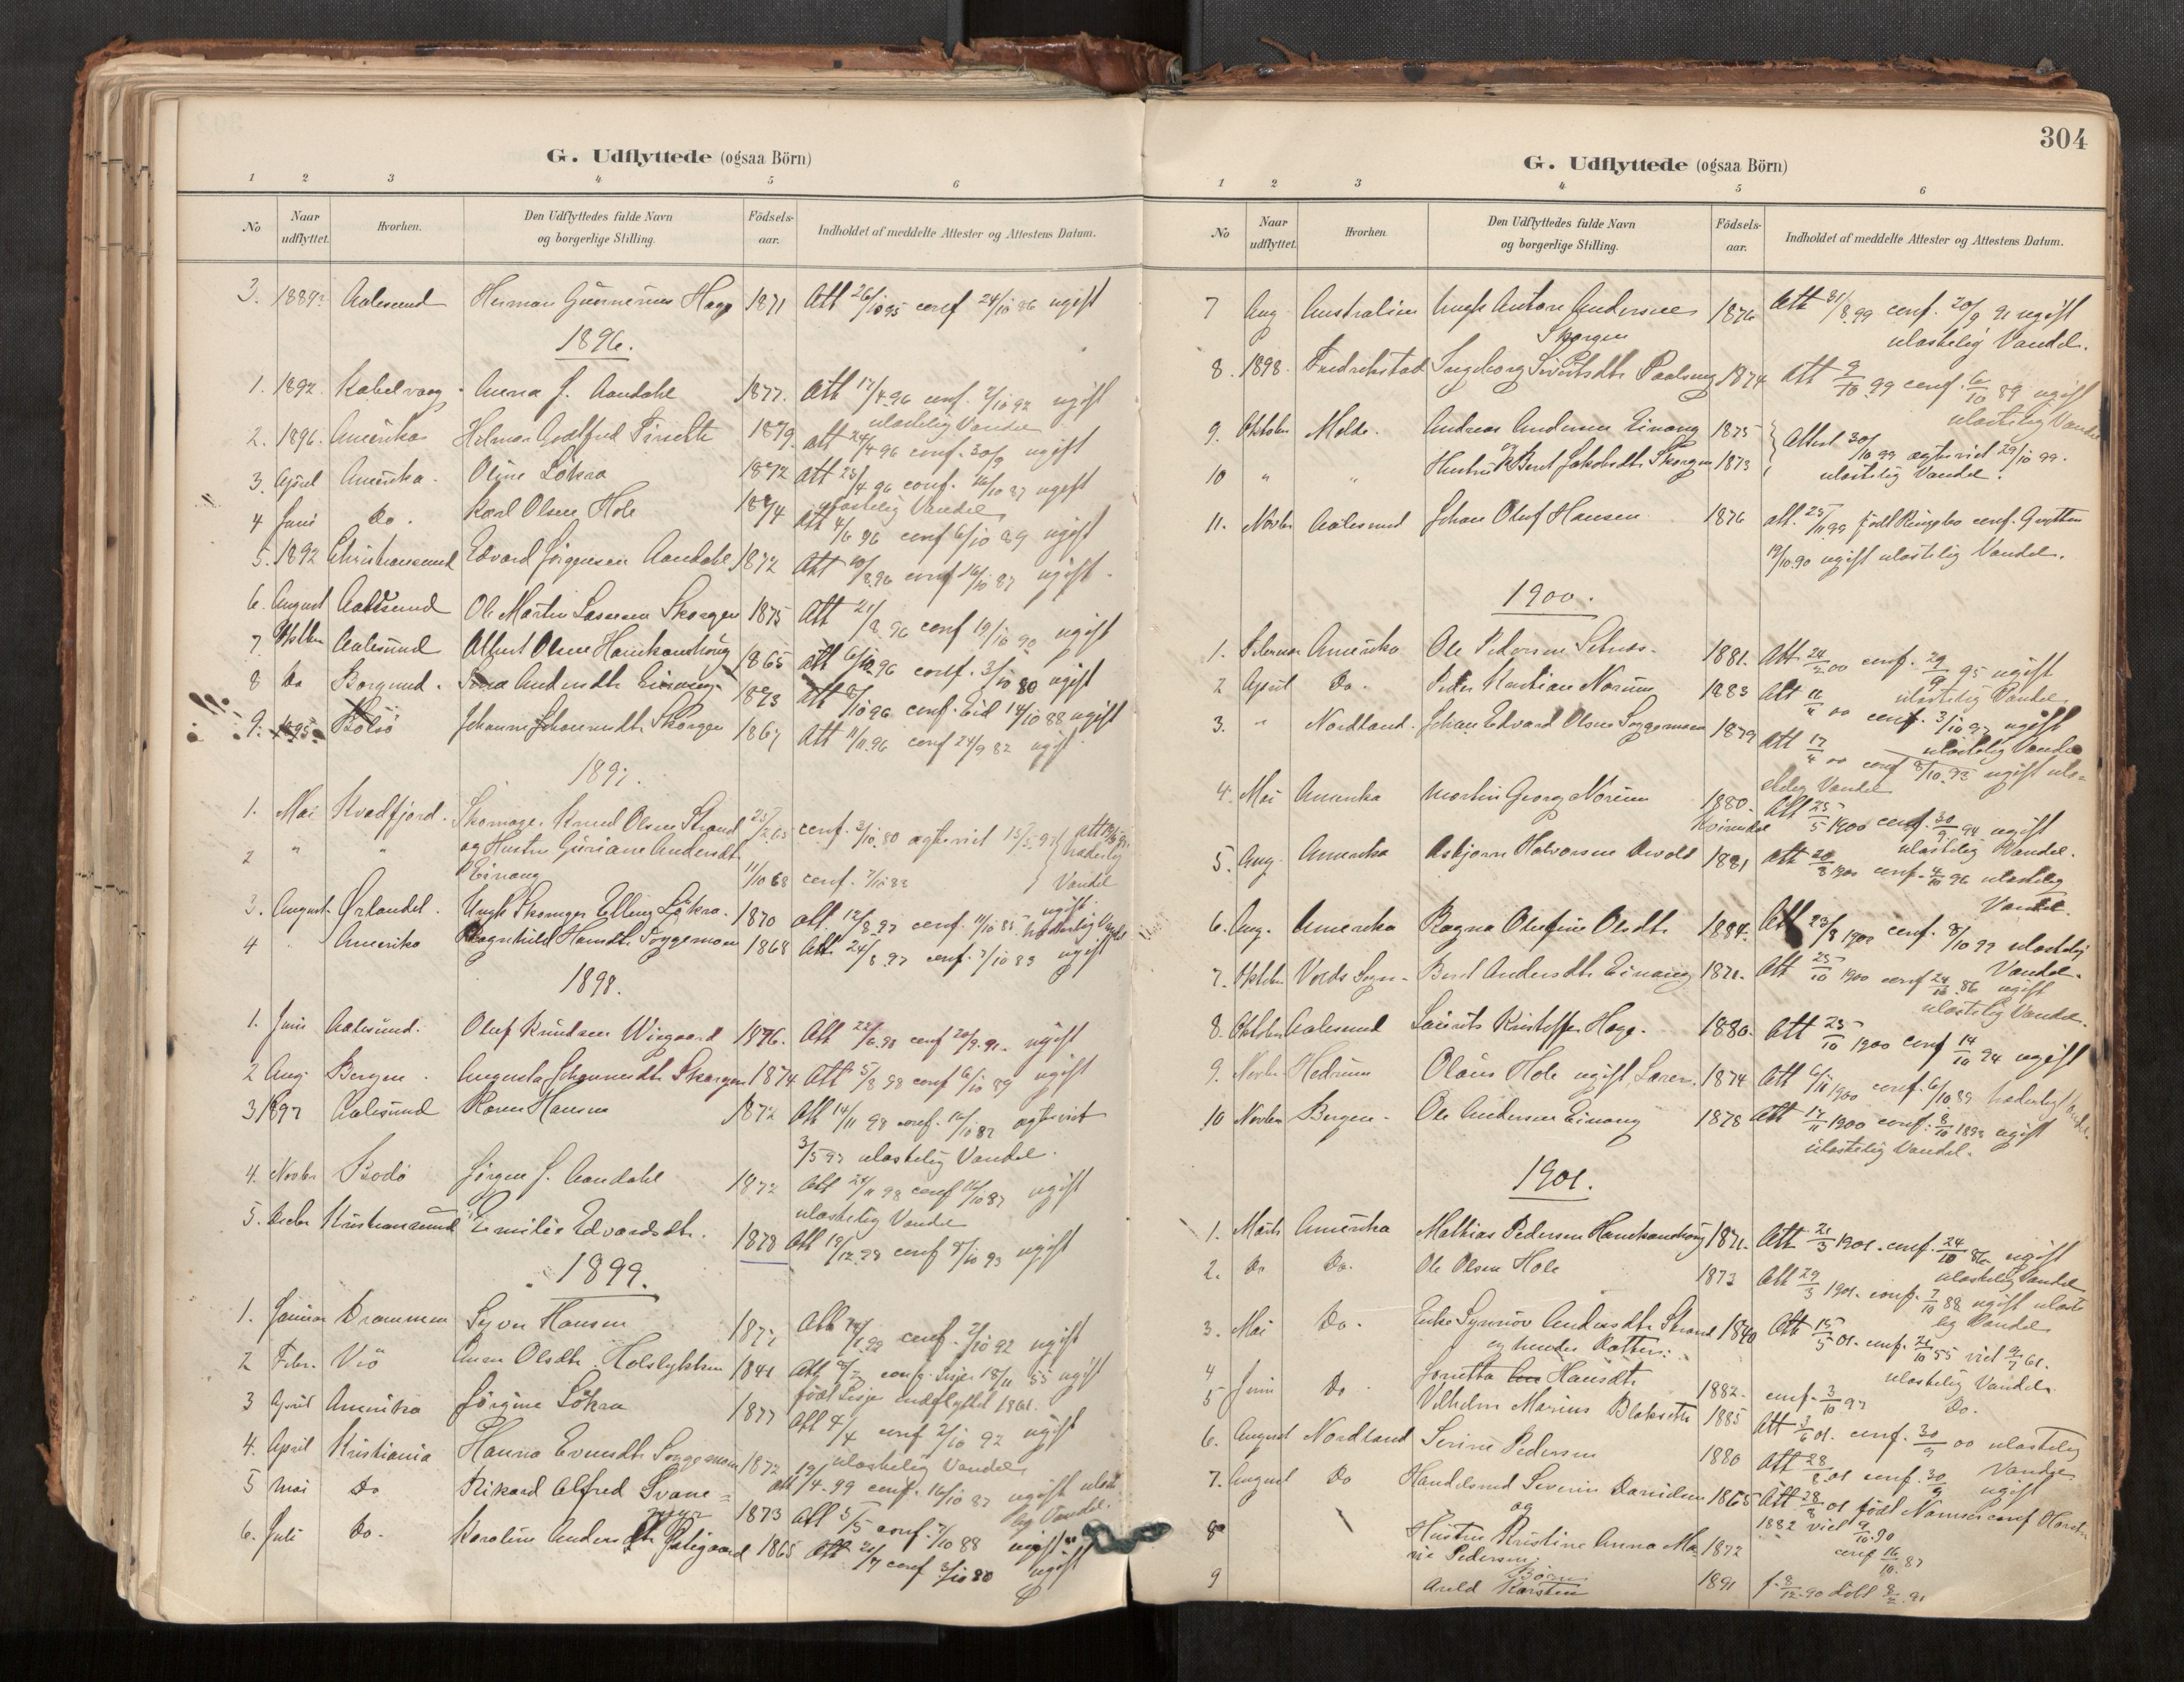 G. Udflyttede (ogsaa Börn)
1 2 3 4 5 6
No Naar udflyttet. Hvorhen. Den Udflyttedes fulde Navn og borgerlige Stilling. Födsels-aar. Indholdet af meddelte Attester og Attestens Datum.
3. 1889 Aalesund Herman Gunnerius Hage 1871 Att 26/10 95 conf 24/10 86 ugift
1896.
1. 1892. Kabelvaag Anna J. Aandahl 1877. Att 17/4 96 conf. 2/10 92 ugift
ulastelig Vandel
2. 1896. Amerika Hilmar Godtfred 1879. att 24/4 96 conf. 30/9 ugift
3. April Amerika. Oline Lökra 1872 Att 25/4 96 conf. 16/10 87 ugift
ulastelig Vandel
4 Juni Do. Karl Olsen Hole 1874 Att 4/6 96 conf 6/10 89 ugift
5. 1892 Christiansund Edvard Jörgensen Aandahl 1872 Att 10/8 96 conf 16/10 87 ugift.
6. August Aalesund Ole Martin Lassesen Skorgen 1875 Att 21/8 96 conf 19/10 90 ugift
7 Oktbr Aalesund Albert Olsen Hamkanhoug 1865 att 6/10 96 conf. 3/10 80 ugift
8 Do Borgund. Andersdtr Einang 1873 Att 8/10 96 conf. Eid 14/10 88 ugift
9. 1895 Bolsö Johanne Johannesdtr Skorgen 1867 Att 11/11 96 conf 24/9 82 ugift.
1897.
1. Mai Kvædfjord. Skomager Knud Olsen Strand 25/2 65 conf. 3/10 80 ægteviet 15/5 97 hæderlig
2 " " og Hustru Guriane Andersdtr
Einang 11/10 68 conf. 7/10 83 Vandel
3. August Ørlandet. Ungk Skomager Elling Lökra. 1870 att. 12/8 97 conf. 11/10 85 ugift. hæderlig Vandel
4 " Amerika Ragnhild Hansdtr Soggemoen 1868 Att 24/8 97 conf. 7/10 83 ugift
1898.
1. Juni Aalesund. Oluf Knudsen Wiegaard 1876. Att 22/6 98 conf 20/9 91. ugift
2 Aug Bergen. Augusta Johannesdtr Skorgen 1874 Att 5/8 98 conf 6/10 89 ugift
3 1897 Aalesund Karen Hansen 1872 Att 14/11 98 conf. 16/10 87 ægteviet
3/5 97 ulastelig Vandel.
4. Novbr Bodö Jörgen J. Aandahl 1872 Att 24/11 98 conf 16/10 87 ugift
ulastelig Vandel
5. Decbr Kristiansund Emilie Edvardsdtr. 1878 Att 19/12 98 conf 8/10 93 ugift
1899.
1. Januar Drammen Syver Hansen 1877 Att 1.99 conf. 2/10 92 ugift
2 Febr. Viö Anne Olsdtr. Holslykken 1841 Att conf. Lesje 18/11 55 ugift
födt Lesje indflyttet 1861.
3 April Amerika Jörgine Lökra 1877 Att 4/4 conf 2/10 92 ugift
ulastelig Vandel
4. April Kristiania Hanna Evensdtr Soggemoen 1872 att /4-99 conf. 16/10 87 ugift ulast
elig Vandel.
5 Mai Do Rikard Alfred Svane= 1873 Att 5/5 conf. 7/10 88 ugift
6. Juli Do. Karoline Andersdtr 1865 Att 21/7 conf 3/10 80 ugift
304
G. Udflyttede (ogsaa Börn)
1 2 3 4 5 6
No Naar udflyttet. Hvorhen. Den Udflyttedes fulde Navn og borgerlige Stilling. Födsels-aar. Indholdet af meddelte Attester og Attestens Datum.
7 Aug Australien Ungk Anton Andersen 1876 Att 31/8.99 conf. 20/9 91 ugift
Skorgen ulastelig Vandel.
8. 1898. Fredrikstad Ingeborg Sivertsdtr 1874 Att 9/10 99 conf. 6/10 89 ugift
ulastelig Vandel
9. Oktober Molde. Andreas Andersen Einang 1875 Attest 30/10 99 ægteviet 29/10 99.
10 " " og Hustru Berit Jakobsdtr Skorgen 1873 ulastelig Vandel.
11. Novbr Aalesund Johan Oluf Hansen 1876 att. 25/11 99 född Ringebo conf. Grytten
19/10.90 ugift ulastelig Vandel.
1900.
1. Februar Amerika Ole Pedersen Setnes. 1881. Att 24/2 00 conf. 29/9 95 ugift
ulastelig Vandel
2 April Do. Peder Kristian Norum 1883 Att 11/4 00 conf. 3/10 97 ugift
ulastelig Vandel
3. " Nordland. Johan Edvard Olsen Soggemoen 1879 Att 17/4 00 conf 8/10.93 ugift ula=
stelig Vandel
4. Mai Amerika Martin Georg Norum 1880. Att 25/5 1900 conf. 30/9 94 ugift
ulastelig Vandel.
5. Aug. Amerika Asbjørn Halvorsen Devold 1881 Att 20/8 1900 conf. 4/10 96 ulastelig
Vandel.
6. Aug. Amerika Ragna Olufine Olsdtr 1884. Att 23/8 1900 conf. 8/10 99 ulastelig
Vandel.
7. Oktober Volds Sogn. Berit Andersdtr Einang 1871. Att 25/10 1900 conf 24/10 86 ugift
ulastelig Vandel.
8. Oktober Aalesund Laurits Kristoffer Hage. 1880. Att 25/10 1900 conf 14/10 94 ugift
9. Novbr Hedrum Olaus Hole ugift Lærer. 1874 Att 6/11 1900 conf. 6/10 89 hæderlig Vandel.
10 Novbr Bergen. Ole Andersen Einang 1878 Att 17/11 1900 conf. 8/10 1893 ugift
ulastelig Vandel.
1901.
1. Marts Amerika Mathias Pedersen Hamkanhoug 1871. Att 21/3 1901. conf. 24/10 86. ugift
ulastelig Vandel
2. Do Do. Ole Olsen Hole 1873 Att 29/3 1901. conf. 7/10 88 ugift ulaste
lig Vandel
3. Mai Do. Enke Synnöv Andersdtr Strand 1840 Att 15/5 01. conf. 21/10 55 viet 9/7 61.
og hendes Datter: ulastelig Vandel.
4 Jonetta Hansdtr 1882. conf. 3/10 97 Do.
5 Juni Do Vilhelm Marius Blaksæth 1885 Att 3/6 01. conf. 30/9 00 ulastelig
Vandel
6. August Nordland Serine Pedersen 1880 Att 28/8 01 conf. 30/9 ugift
7. August Do Handelsmd Severin Danielsen 1865 Att 28/8 01 född conf
og 1882 viet 9/10 90
8 Hustru Kristine Anna Ma 1872 conf 16/10. 87
rie Pedersen.
Börn
9 Karsten 1891 f. 8/12 90 döbt 8/2 91